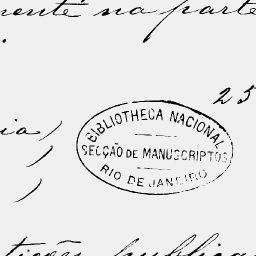 mente na parte
25
ia)
)
)
BIBLIOTHECA NACIONAL
SECÇÃO DE MANUSCRIPTOS
RIO DE JANEIRO